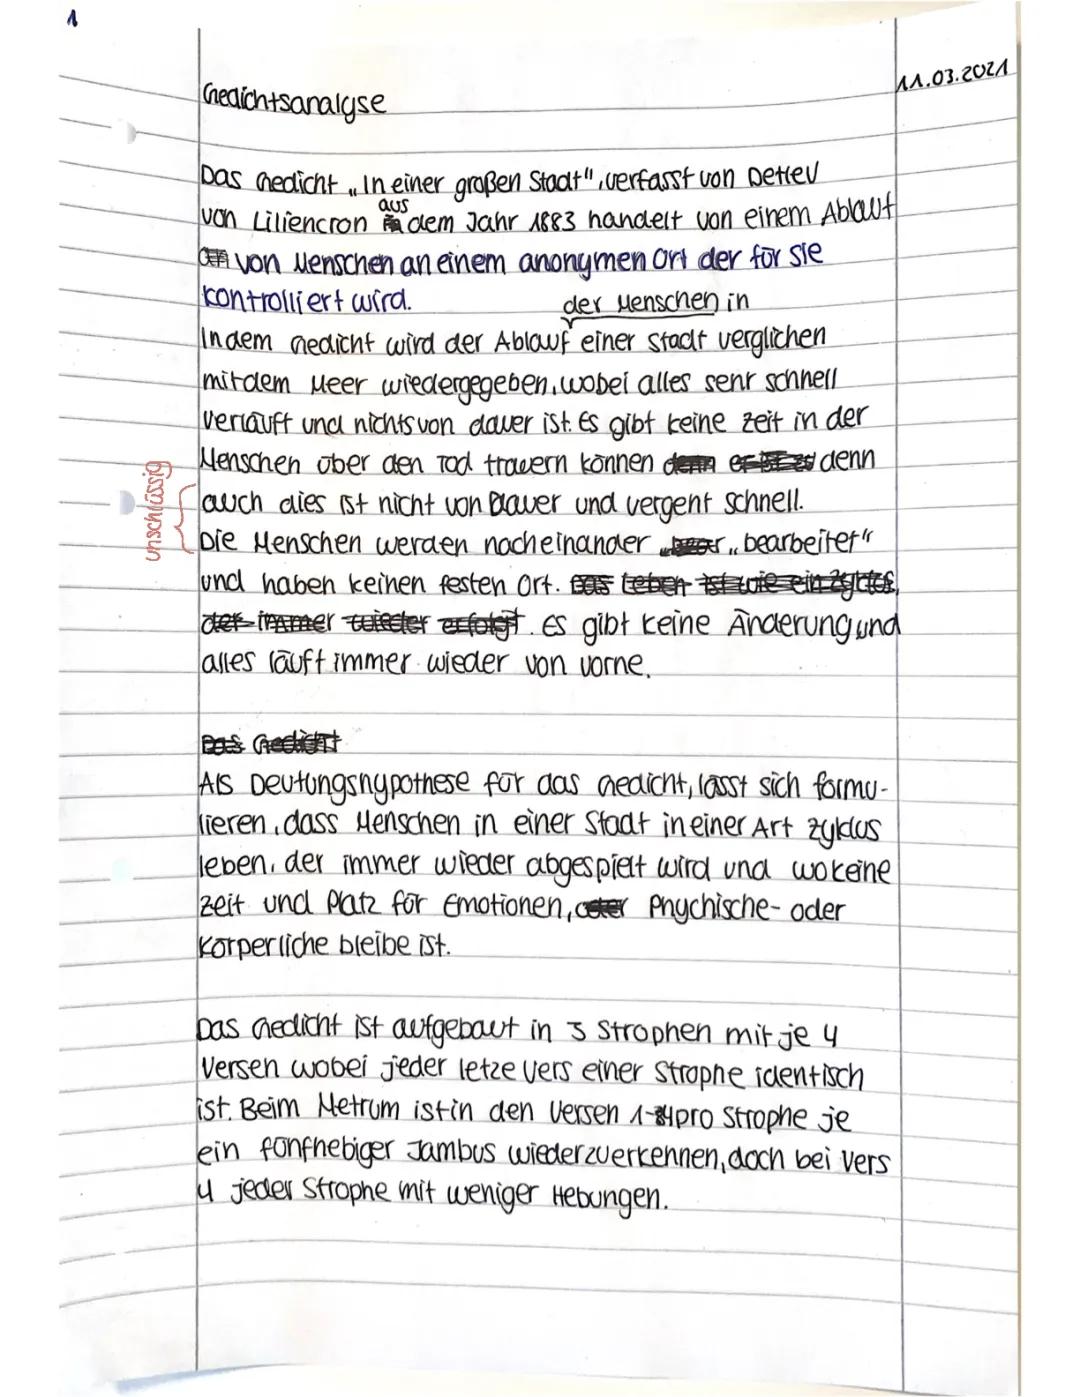 1
11.03.2021
Gedichtsanalyse
Das Gedicht „In einer großen Stadt", verfasst von Detlev
aus
von Liliencron dem Jahr 1883 handelt von einem Ablauf
von Menschen an einem anonymen Ort der für sie
kontrolliert wird.
der Menschen in
In dem Gedicht wird der Ablauf einer Stadt verglichen
mit dem Meer wiedergegeben, wobei alles sehr schnell
verläuft und nichts von dauer ist. Es gibt keine zeit in der
Menschen über den Tod trauern können denn er ist zu denn
auch dies ist nicht von Dauer und vergeht schnell.
unschlüssig
Die Menschen werden nacheinander „bearbeitet"
und haben keinen festen Ort. Das Leben ist wie ein Zyklus,
der immer wieder erfolgt. Es gibt keine Änderung und
alles läuft immer wieder von vorne.
Das Gedicht
Als Deutungshypothese für das Gedicht, lässt sich formu-
lieren, dass Menschen in einer Stadt in einer Art zyklus
leben, der immer wieder abgespielt wird und wo keine
zeit und Platz für Emotionen, oder Phychische- oder
Körperliche bleibe ist.
Das Gedicht ist aufgebaut in 3 Strophen mit je 4
Versen wobei jeder letze Vers einer Strophe identisch
ist. Beim Metrum ist in den Versen 1- pro Strophe je
ein fünfhebiger Jambus wiederzuerkennen, doch bei Vers
4 jeder Strophe mit weniger Hebungen.